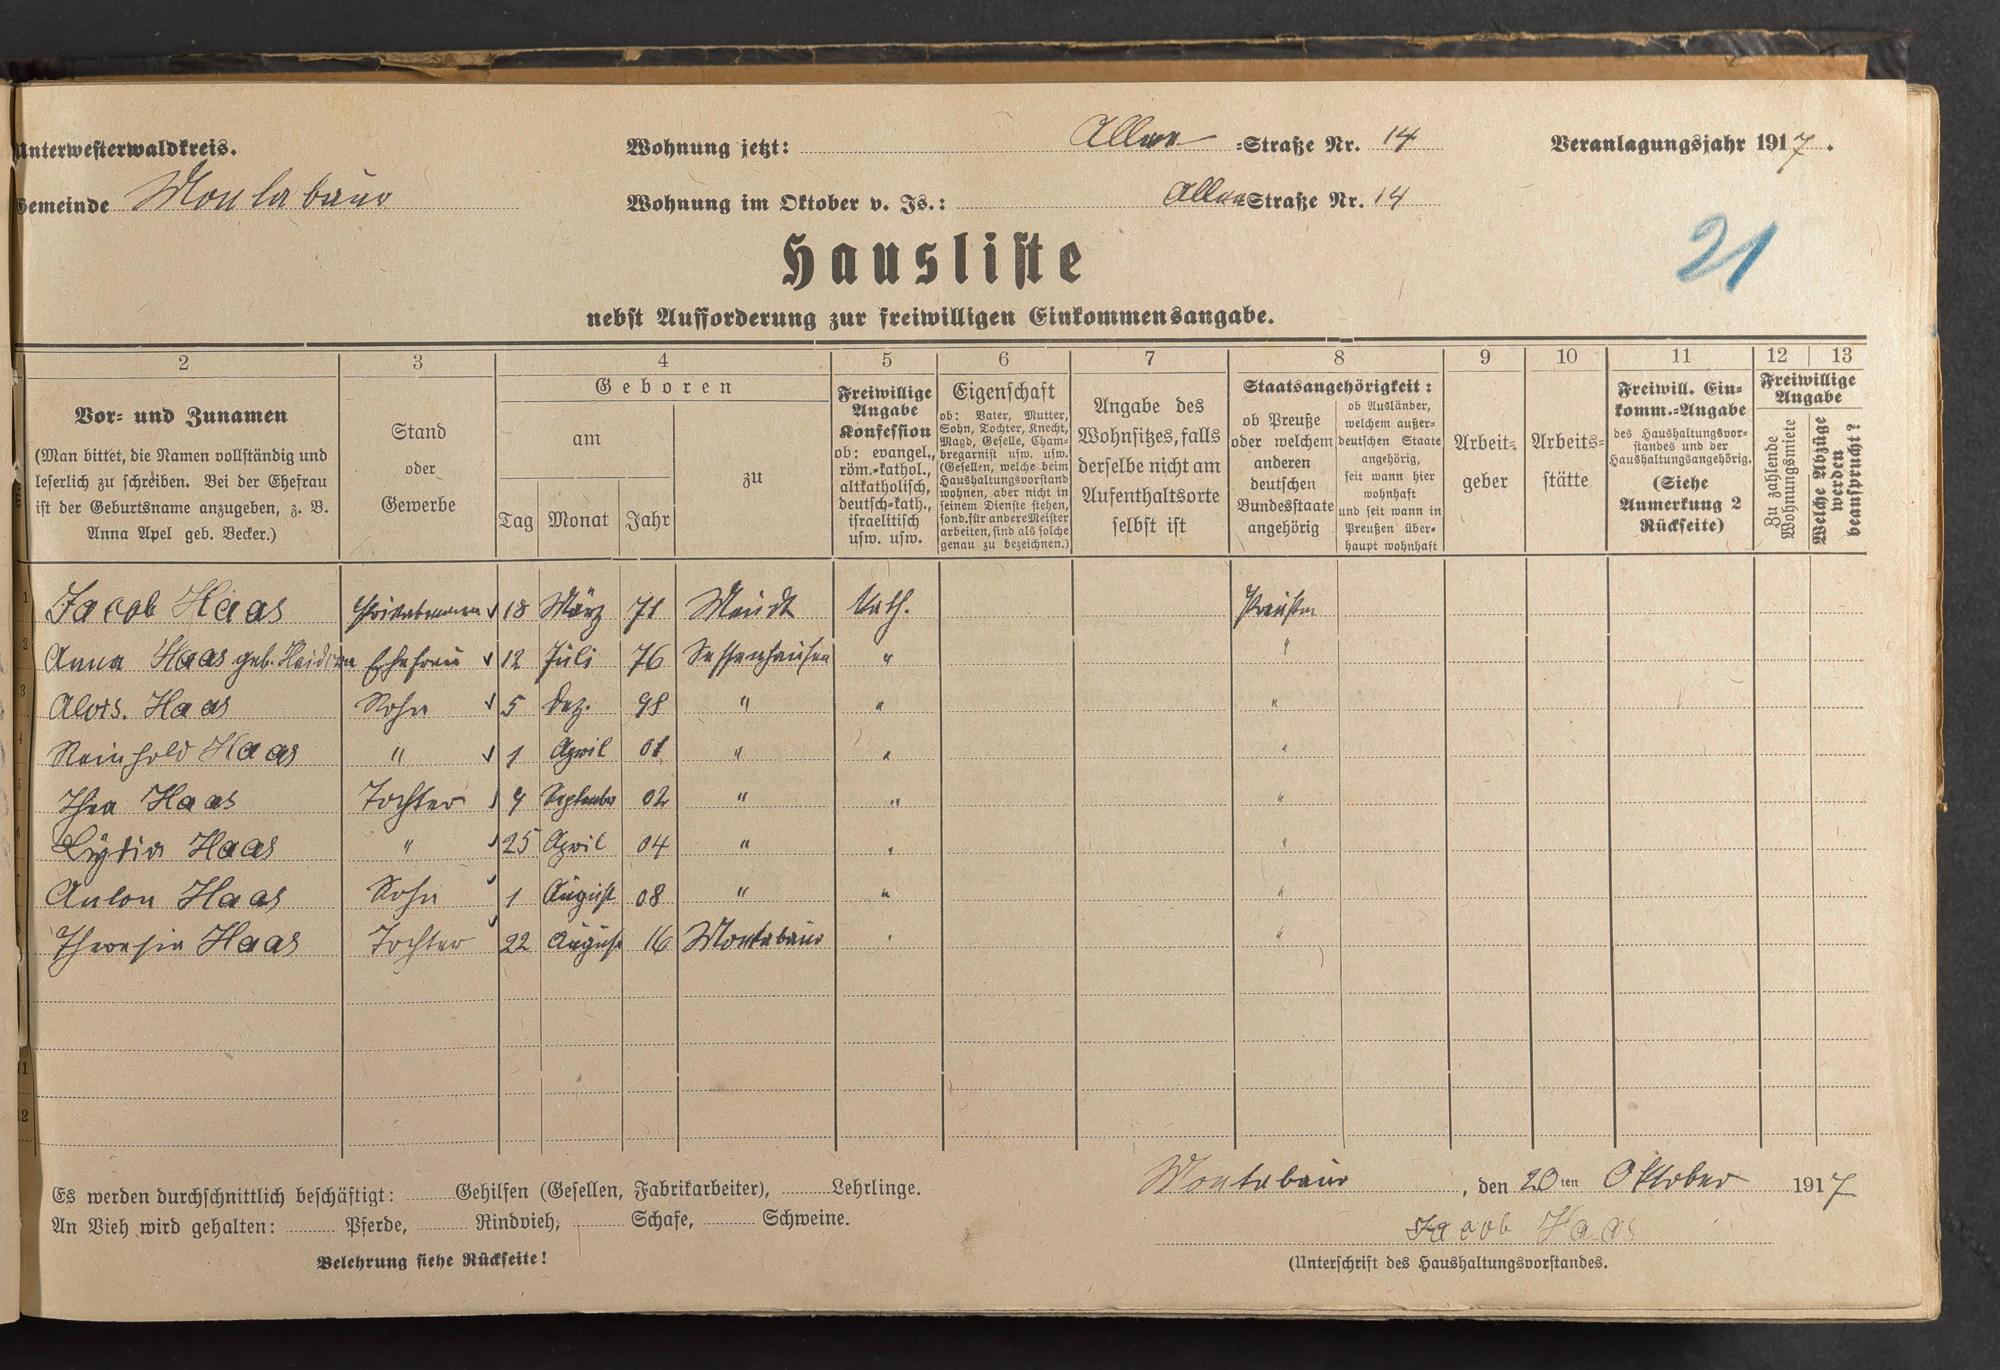 Unterwesterwaldkreis.
Wohnung jetzt: -Straße Nr. 14
Veranlagungsjahr 1917.
Gemeinde Montabaur
Wohnung im Oktober v. Js.: Straße Nr. 14
21
Hausliste
nebst Aufforderung zur freiwilligen Einkommensangabe.
2 3 4 5 6 7 8 9 10 11 12 13
Vor- und Zunamen
(Man bittet, die Namen vollständig und
leserlich zu schreiben. Bei der Ehefrau
ist der Geburtsname anzugeben, z. B.
Anna Apel geb. Becker.)
Stand
oder
Gewerbe
Geboren
am
Tag Monat Jahr
zu
Freiwillige
Angabe
Konfession
ob: evangel.,
röm.-kathol.,
altkatholisch,
deutsch-kath.,
israelitisch
usw. usw.
Eigenschaft
ob: Vater, Mutter,
Sohn, Tochter, Knecht,
Magd, Geselle, Cham-
bregarnist usw. usw.
(Gesellen, welche beim
Haushaltungsvorstand
wohnen, aber nicht in
seinem Dienste stehen,
sond. für andere Meister
arbeiten, sind als solche
genau zu bezeichnen.)
Angabe des
Wohnsitzes, falls
derselbe nicht am
Aufenthaltsorte
selbst ist
Staatsangehörigkeit:
ob Preuße
oder welchem
anderen
deutschen
Bundesstaate
angehörig
ob Ausländer,
welchem außer-
deutschen Staate
angehörig,
seit wann hier
wohnhaft
und seit wann in
Preußen über-
haupt wohnhaft
Arbeit-
geber
Arbeits-
stätte
Freiwill. Ein-
komm.-Angabe
des Haushaltungsvor-
standes und der
Haushaltungsangehörig.
(Siehe
Anmerkung 2
Rückseite)
Freiwillige
Angabe
Zu zahlende
Wohnungsmiete
Welche Abzüge
werden
beansprucht?
1 Jacob Haas Privatmann 18 März 71 Meudt Kath. Preußen
2 Anna Haas geb. Ehefrau 12 Juli 76 Sessenhausen " "
3 Alois. Haas Sohn 5 Dez. 98 " " "
4 Reinhold Haas " 1 April 01 " " "
5 Thea Haas Tochter 9 September 02 " " "
6 Lydia Haas " 25 April 04 " " "
7 Anton Haas Sohn 1 August 08 " " "
8 Theresia Haas Tochter 22 August 16 Montabaur " "
11
12
Es werden durchschnittlich beschäftigt: Gehilfen (Gesellen, Fabrikarbeiter), Lehrlinge.
An Vieh wird gehalten: Pferde, Rindvieh, Schafe, Schweine.
Belehrung siehe Rückseite!
Montabaur, den 20ten Oktober 1917
Jacob Haas
(Unterschrift des Haushaltungsvorstandes.